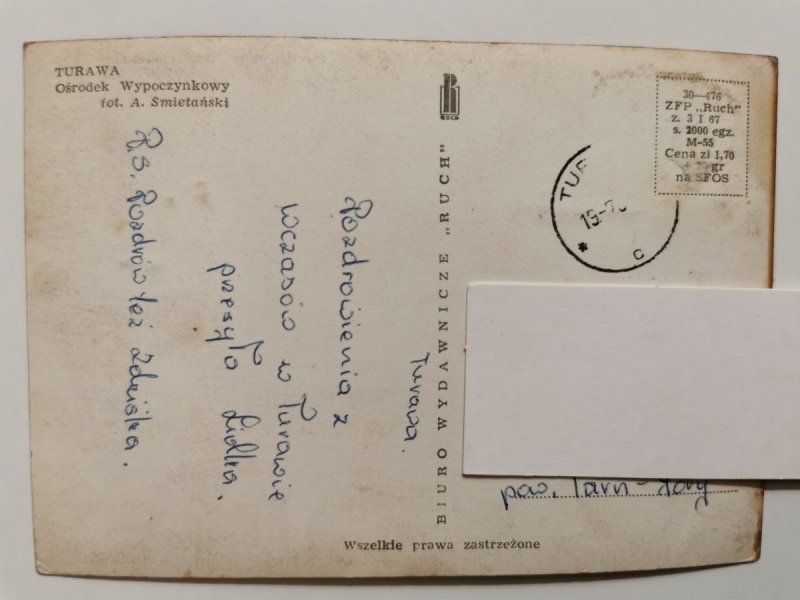 TURAWA
Ośrodek Wypoczynkowy
fot. A. Śmietański
RUCH
30—476
ZFP „Ruch"
z. 3 I 67
s. 2000 egz.
M-55
Cena zł 1,70
gr
na SFOS
TUR
15-7
* C
BIURO WYDAWNICZE „RUCH"
Turawa.
Pozdrowienia z
wczasów w Turawie
przesyła Lidka.
P.S. Pozdrów też Zdziśka.
pow. Tarn-Góry
Wszelkie prawa zastrzeżone